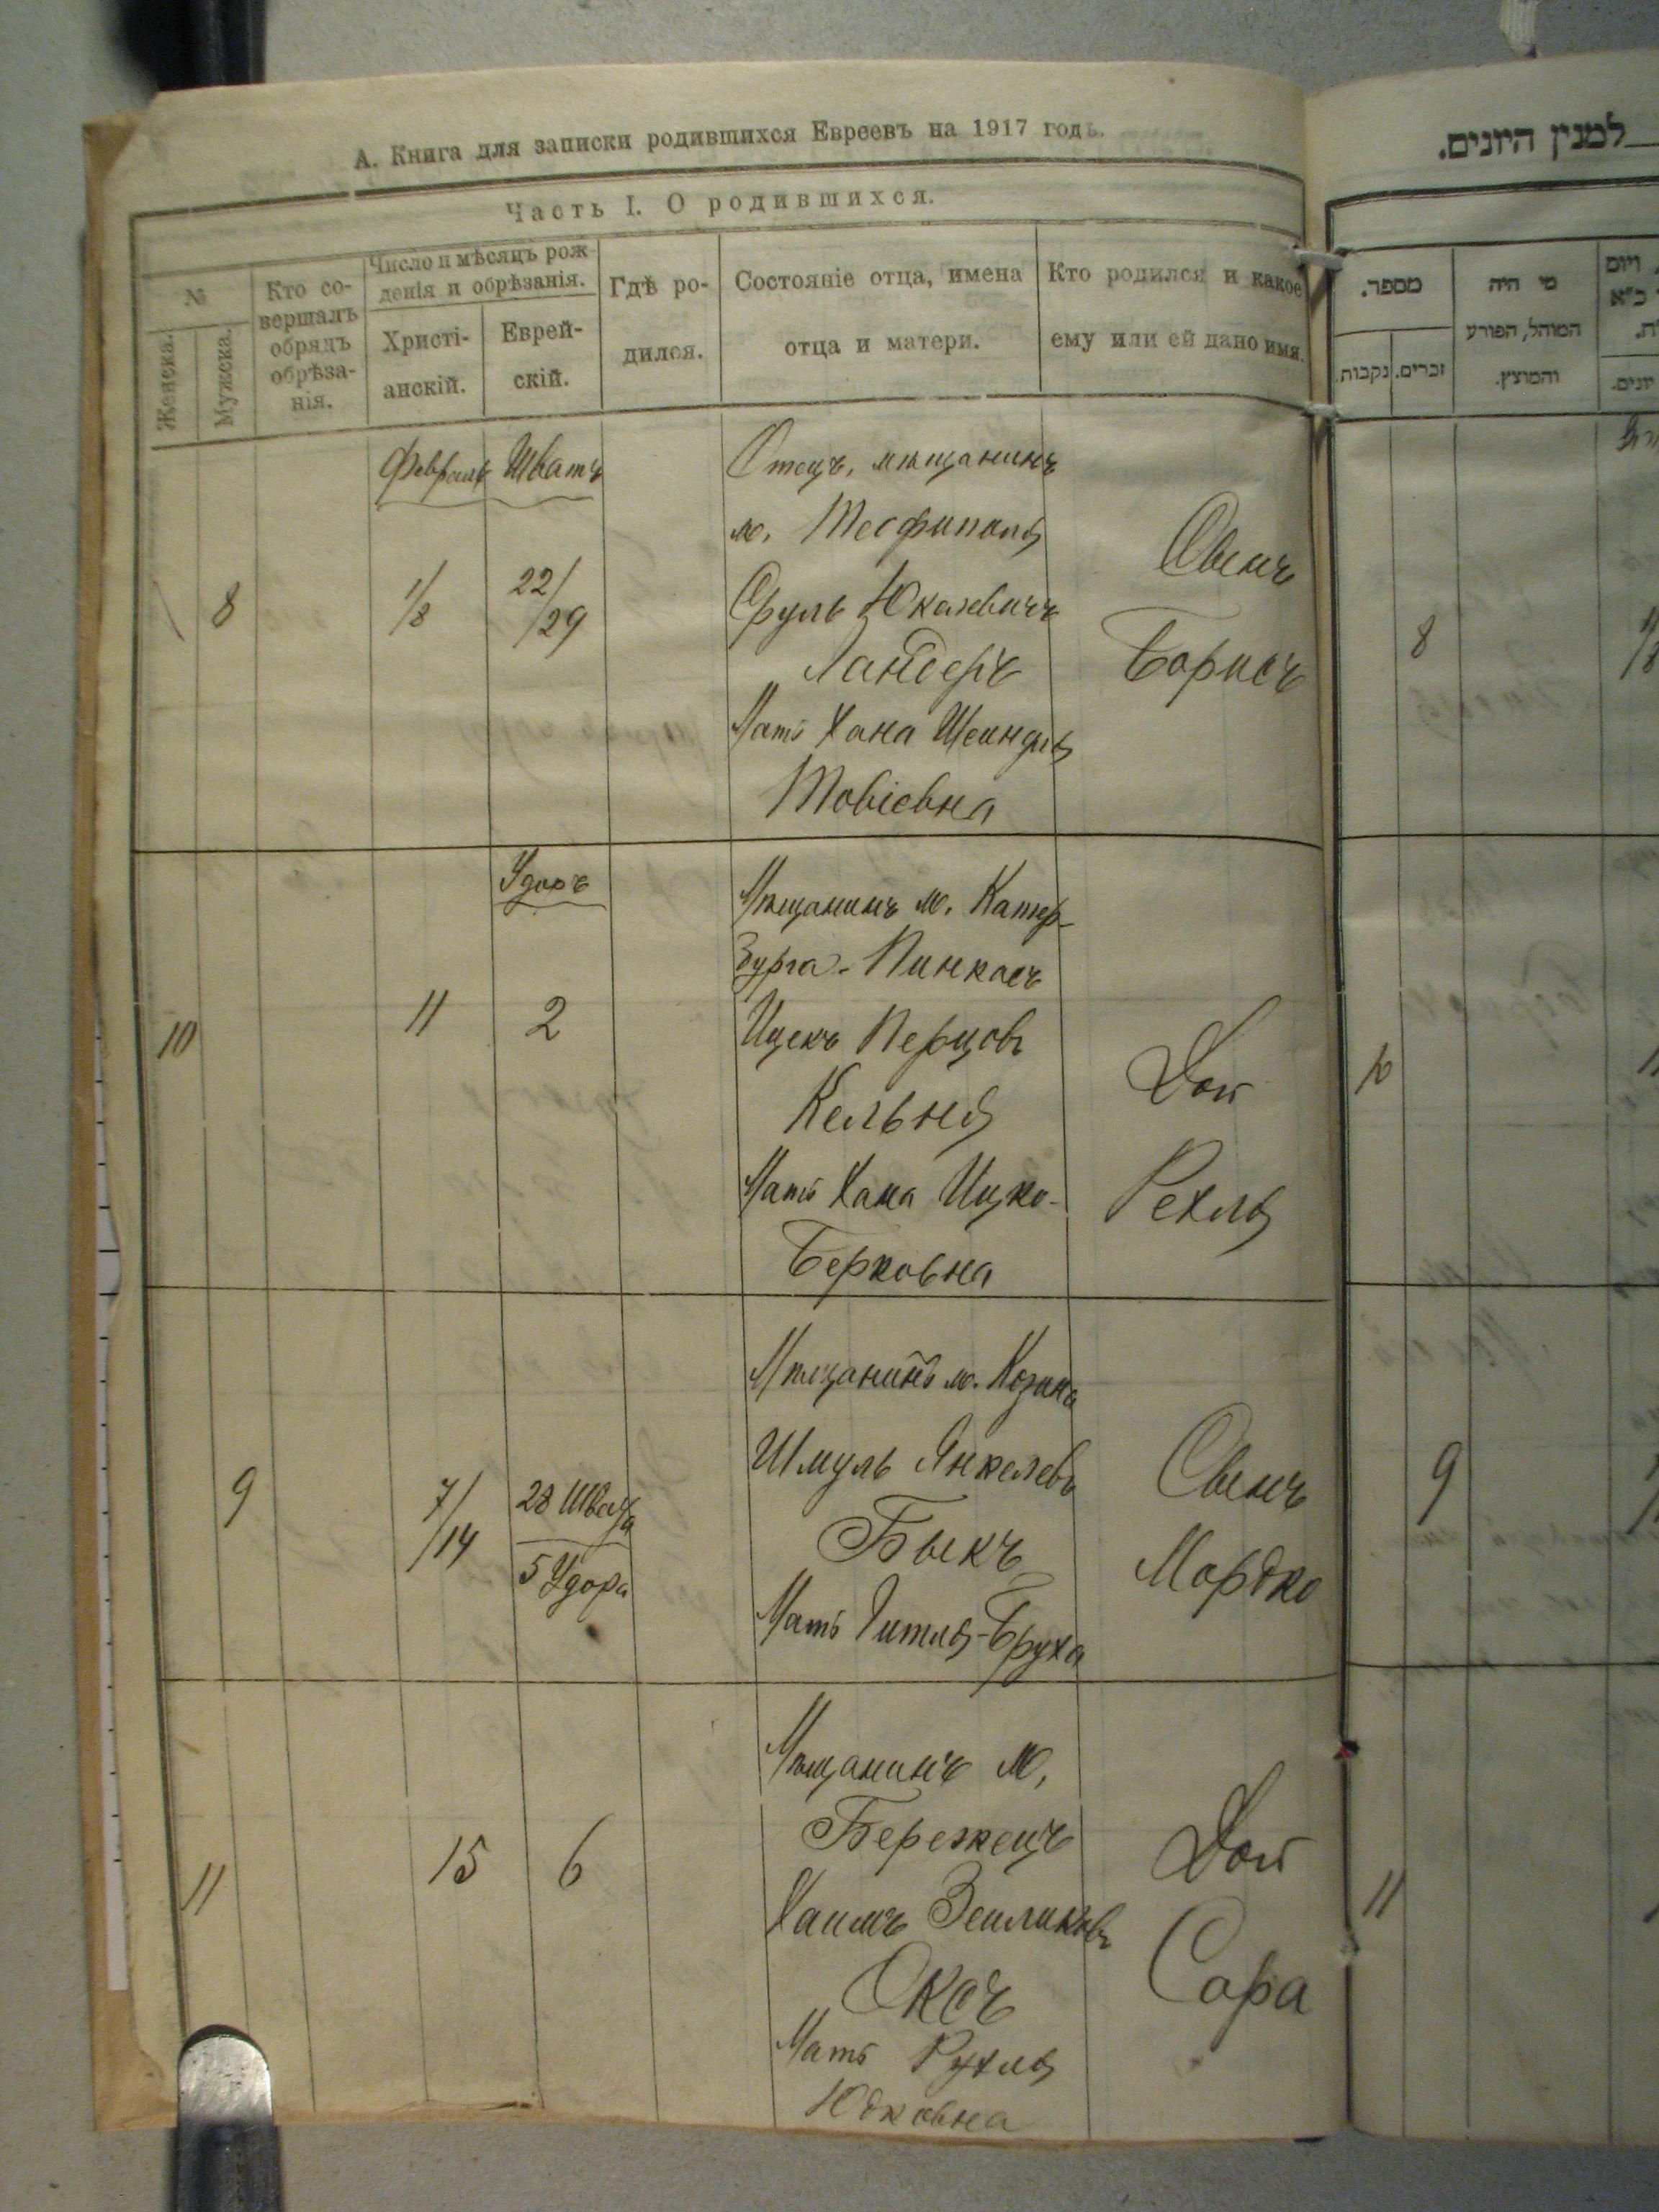 А. Книга для записки родившихся Евреевъ на 1917 годъ.
Часть I. О родившихся.
№
Женска.
Мужска.
Кто со-
вершалъ
обрядъ
обрѣза-
нія.
Число и мѣсяцъ рож-
денія и обрѣзанія.
Христі-
анскій.
Еврей-
скій.
Гдѣ ро-
дился.
Состояніе отца, имена
отца и матери.
Кто родился и какое
ему или ей дано имя.
Февраль Шватъ
8
1/8
22/29
Отецъ, мѣщанинъ
м. Теофиполя
Сруль Юкелевичъ
Ландеръ
Мать Хана Шейндля
Товіевна
Сынъ
Борисъ
Удоръ
10
11
2
Мѣщанинъ м. Катер-
бурга - Пинкасъ
Ицекъ Перцовъ
Кельня
Мать Хана Ицко-
Берковна
Доч
Рехля
9
7/14
28 Швата
5 Удора
Мѣщанинъ м. Козина
Шмуль Янкелевъ
Быкъ
Мать Гитля-Бруха
Сынъ
Мордко
11
15
6
Мѣщанинъ м.
Бережецъ
Хаимъ Зейликовъ
Оксъ
Мать Рухля
Юдковна
Доч
Сора
למנין היונים.
מספר.
נקבות.
זכרים.
מי היה
המוהל, הפורע
והמוצץ.
ויום
כ"א
יונים.
8
10
9
11